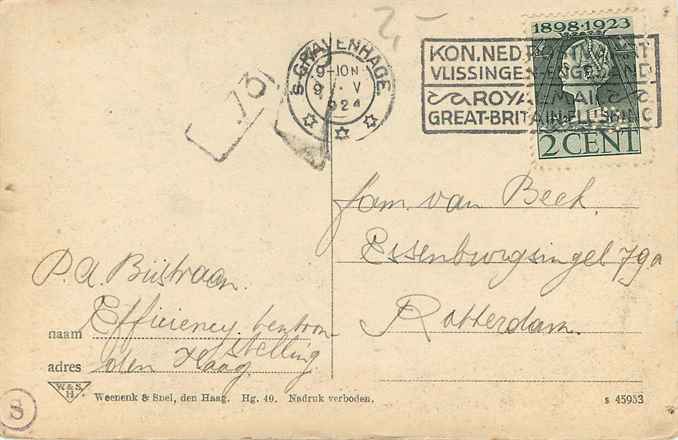 2,-
1898·1923
2 CENT
KON. NED. POSTVAART
VLISSINGEN-ENGELAND
ROYAL MAIL
GREAT-BRITAIN-FLUSHING
'S-GRAVENHAGE.
9-10N
9 V
1924
73
Fam. van Beek.
Essenburgsingel 79a
Rotterdam.
P.A. Bijstraan.
naam Efficiency tentoon
stelling
adres den Haag.
W & S.
H.
Weenenk & Snel, den Haag. Hg. 40. Nadruk verboden.
s 45953
S